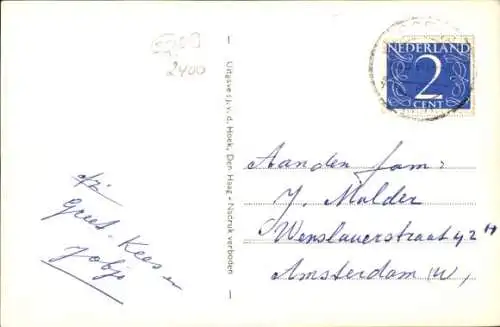 2400
NEDERLAND
2
CENT
Uitgave: J. v. d. Hoek, Den Haag - Nadruk verboden
Aan den fam:
J. Mulder
Wenslauerstraat 42 H
Amsterdam (W,
Greet. Kees en
Jobje